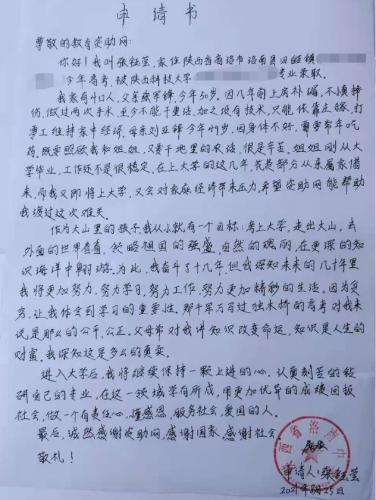 申请书
尊敬的教育资助网：
你好！我叫张钰莹，家住陕西省商洛市洛南县
今年高考，被陕西科技大学 专业录取。
我家有4口人，父亲张军锋，今年50岁，因几年前上房补漏，不慎摔
伤，做过两次手术，至今不能干重活，加之没有技术，只能依靠在镇打
零工维持家中经济，母亲刘亚锋今年49岁，因身体不好，需要常年吃
药，既要照顾我和姐姐，又要干地里的农活，很是辛苦，姐姐刚从大
学毕业，工作还不是很稳定，在上大学的这几年，花费部分从亲属家借
来，而我又即将上大学，又会对家庭经济带来压力，希望资助网能帮助
我渡过这次难关。
作为大山里的孩子我从小就有一个目标：考上大学，走出大山，去
外面的世界看看，领略祖国的强盛，自然的瑰丽，在更深的知
识海洋中翱游，为此，我奋斗了十几年，但我深知未来的几十年里
我将更加努力，努力学习，努力工作，努力更加精彩的生活。因为贫
穷，让我体会到学习的重要性。那千军万马过独木桥的高考对我来
说是那么的公平，公正。父母常对我讲知识改变命运，知识是人生的
财富，我深知这是多么的真实。
进入大学后，我将继续保持一颗上进的心，认真刻苦的钻
研自己的专业，在这一领域学有所成，用更加优异的成绩回报
社会，做一个有责任心，懂感恩，服务社会，爱国的人。
最后，诚然感谢资助网，感谢国家，感谢社会。
敬礼！
申请人：张钰莹
2021年8月25日